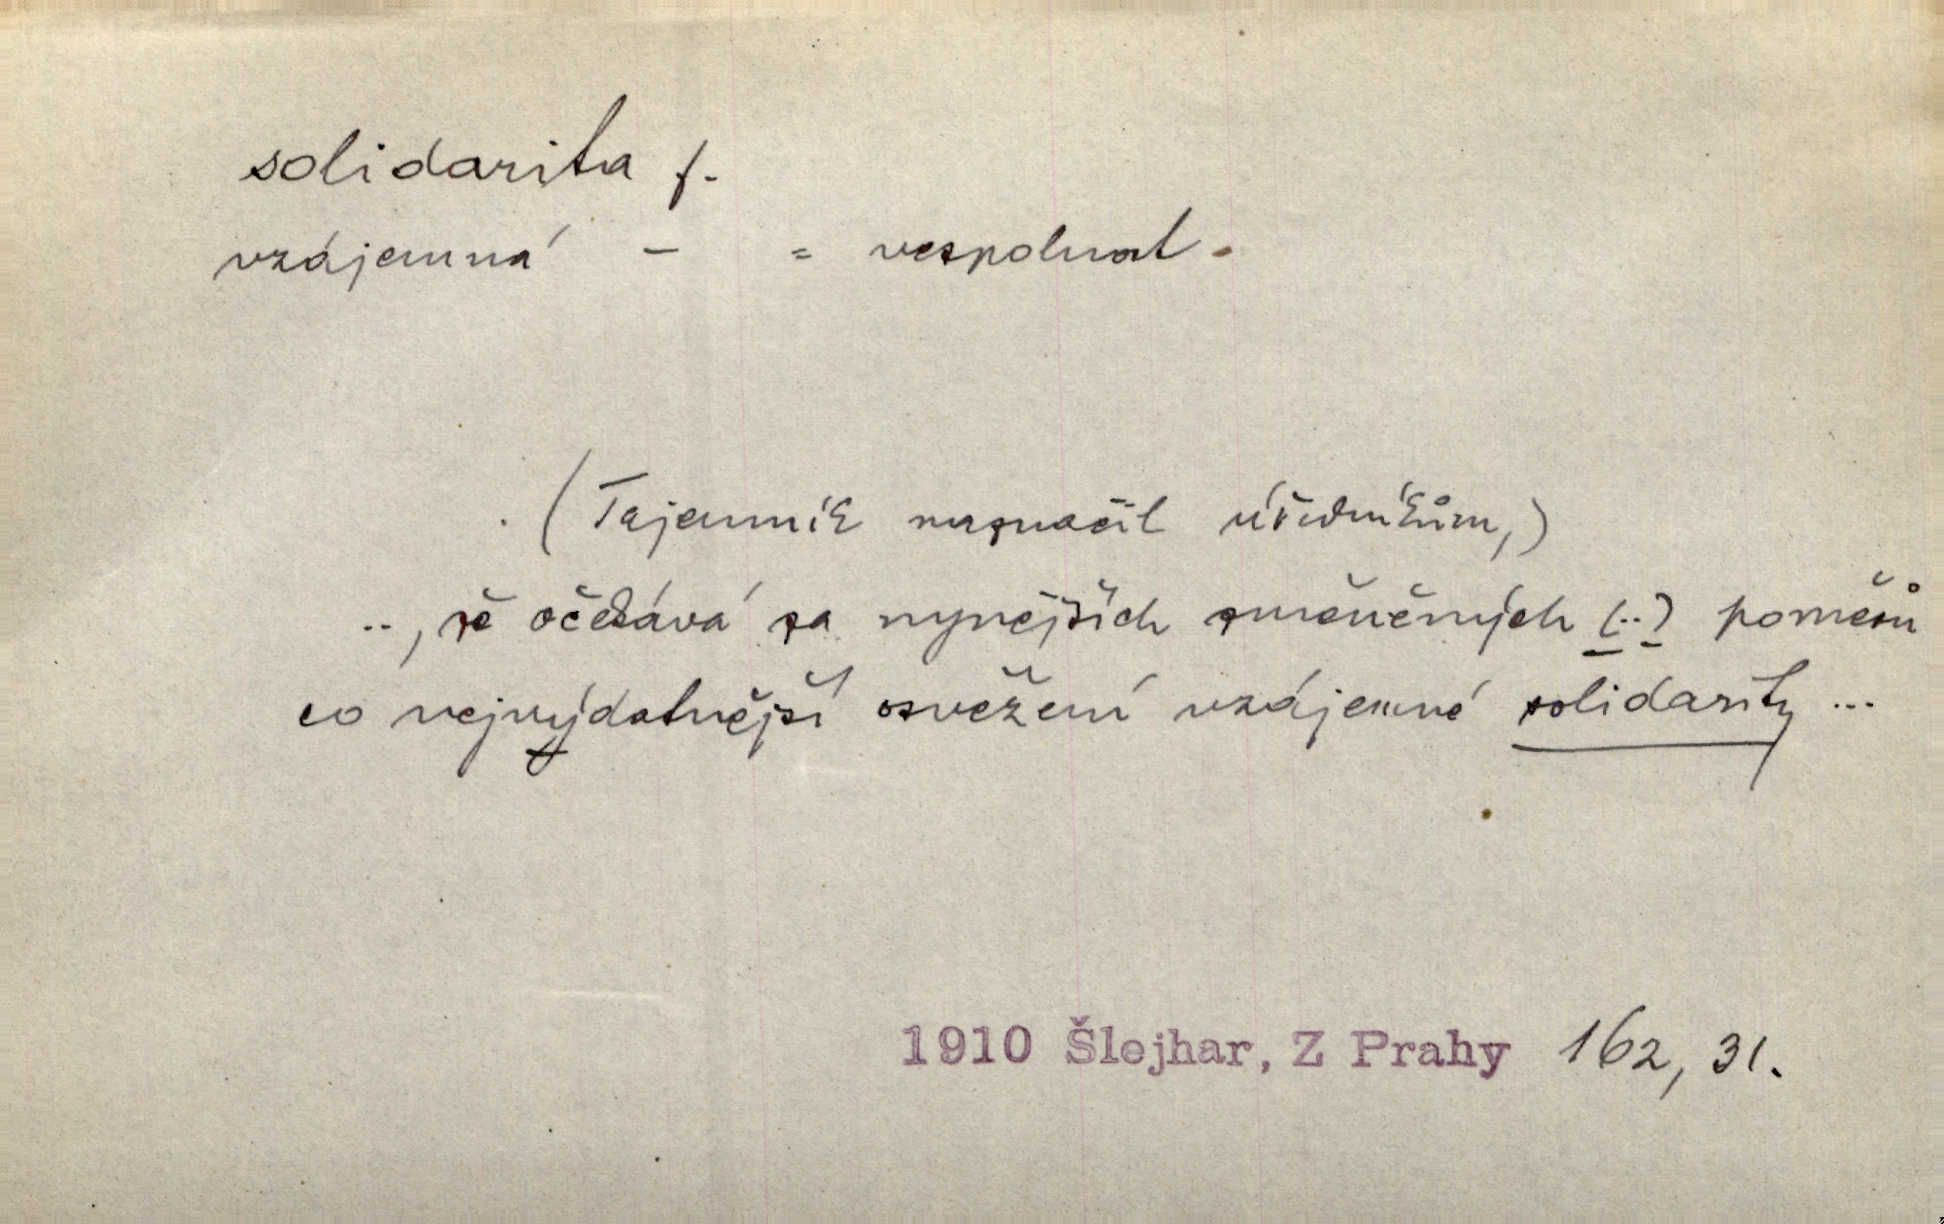 solidarita f.
vzájemná – = vespolnost.
(Tajemník naznačil úředníkům,)
.., že očekává za nynějších změněných (..) poměrů
co nejvýdatnější osvěžení vzájemné solidarity ...
1910 Šlejhar, Z Prahy 162, 31.